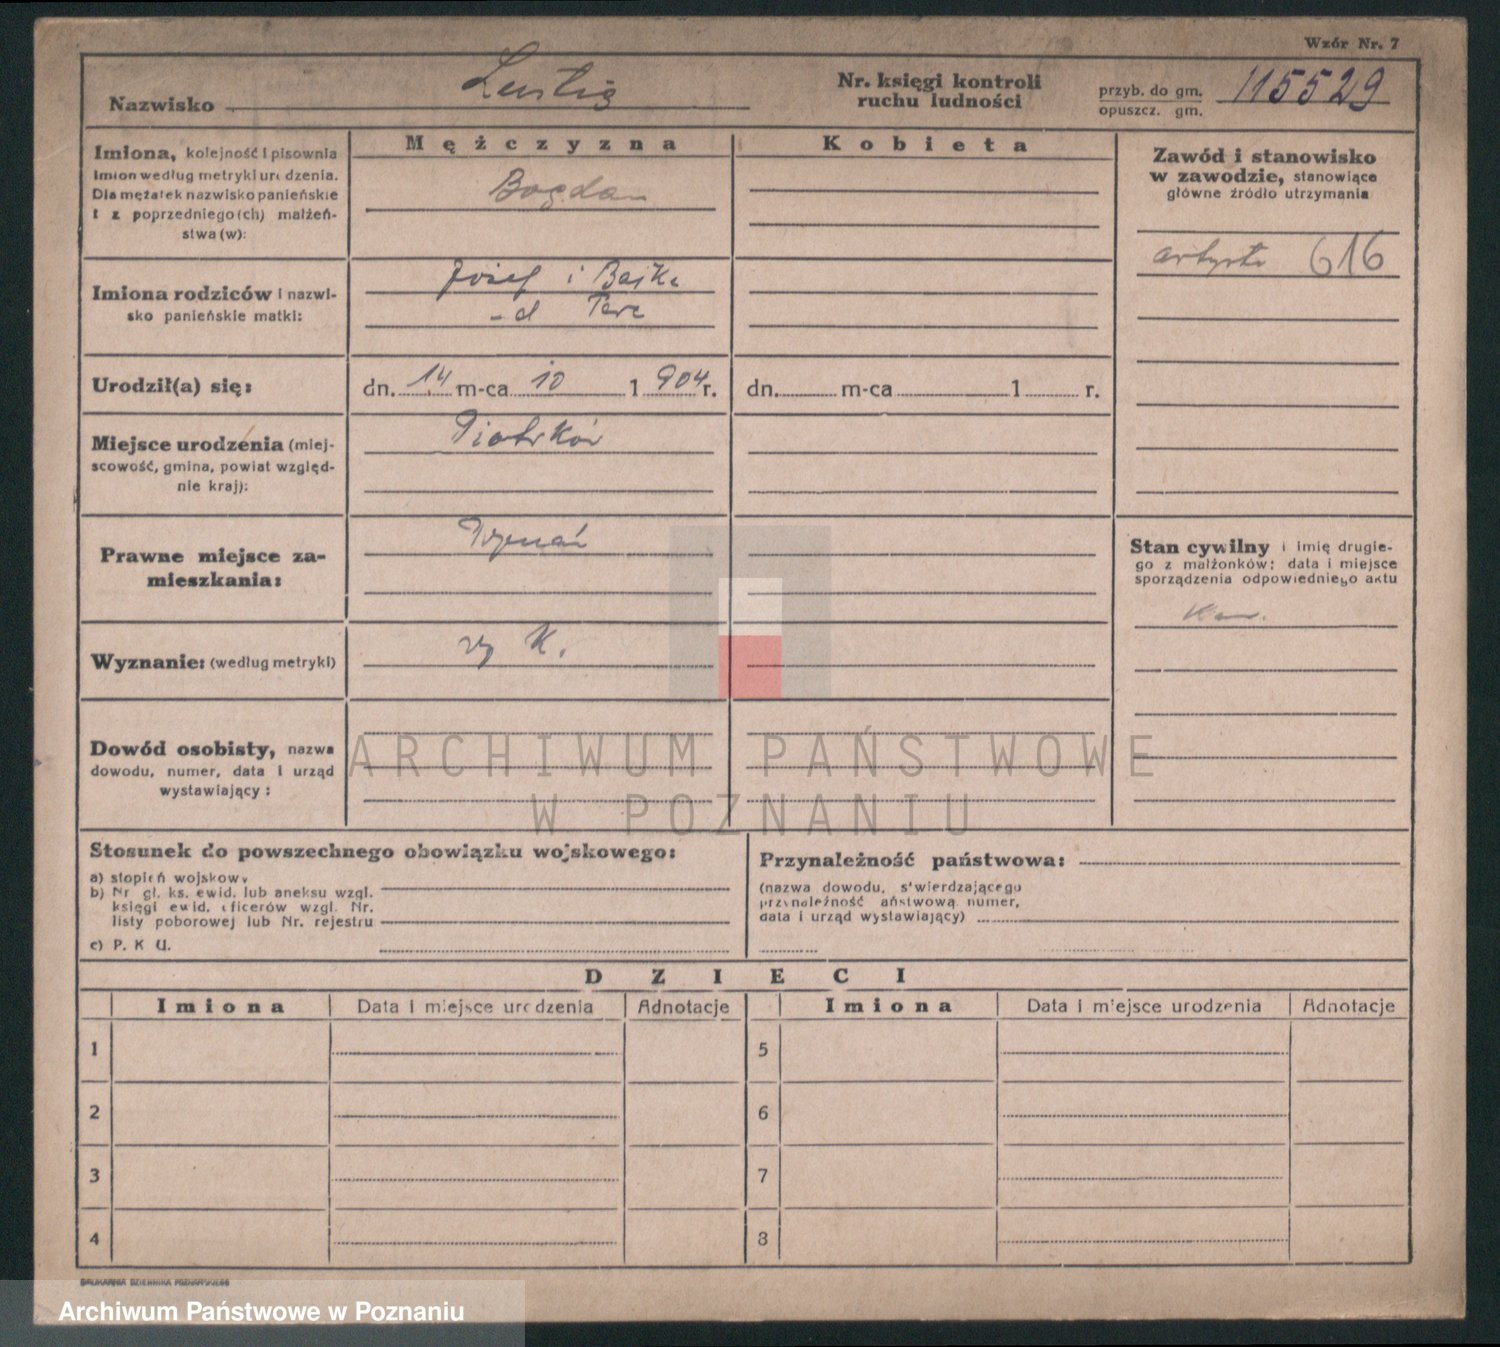 Wzór Nr. 7
Nazwisko Lustig
Nr. księgi kontroli
ruchu ludności
przyb. do gm.
opuszcz. gm.
115529
Imiona, kolejność i pisownia
imion według metryki urodzenia.
Dla mężatek nazwisko panieńskie
i z poprzedniego(ch) małżeń-
stwa(w):
Mężczyzna
Bogdan
Kobieta
Zawód i stanowisko
w zawodzie, stanowiące
główne źródło utrzymania
artysta 616
Imiona rodziców i nazwi-
sko panieńskie matki:
Józef i Bajka
Urodził(a) się:
dn. 14 m-ca 10 1904 r.
dn. m-ca 1 r.
Miejsce urodzenia (miej-
scowość, gmina, powiat wzgląd-
nie kraj):
Piotrków
Prawne miejsce za-
mieszkania:
Poznań
Stan cywilny i imię drugie-
go z małżonków; data i miejsce
sporządzenia odpowiedniego aktu
Wyznanie: (według metryki)
rz K.
Dowód osobisty, nazwa
dowodu, numer, data i urząd
wystawiający:
ARCHIWUM PAŃSTWOWE
W POZNANIU
Stosunek do powszechnego obowiązku wojskowego:
a) stopień wojskowy
b) Nr gł. ks. ewid. lub aneksu wzgl.
księgi ewid. oficerów wzgl. Nr.
listy poborowej lub Nr. rejestru
c) P. K U.
Przynależność państwowa:
(nazwa dowodu, stwierdzającego
przynależność państwową numer,
data i urząd wystawiający)
DZIECI
Imiona Data i miejsce urodzenia Adnotacje Imiona Data i miejsce urodzenia Adnotacje
1 5
2 6
3 7
4 8
DRUKARNIA DZIENNIKA POZNAŃSKIEGO
Archiwum Państwowe w Poznaniu